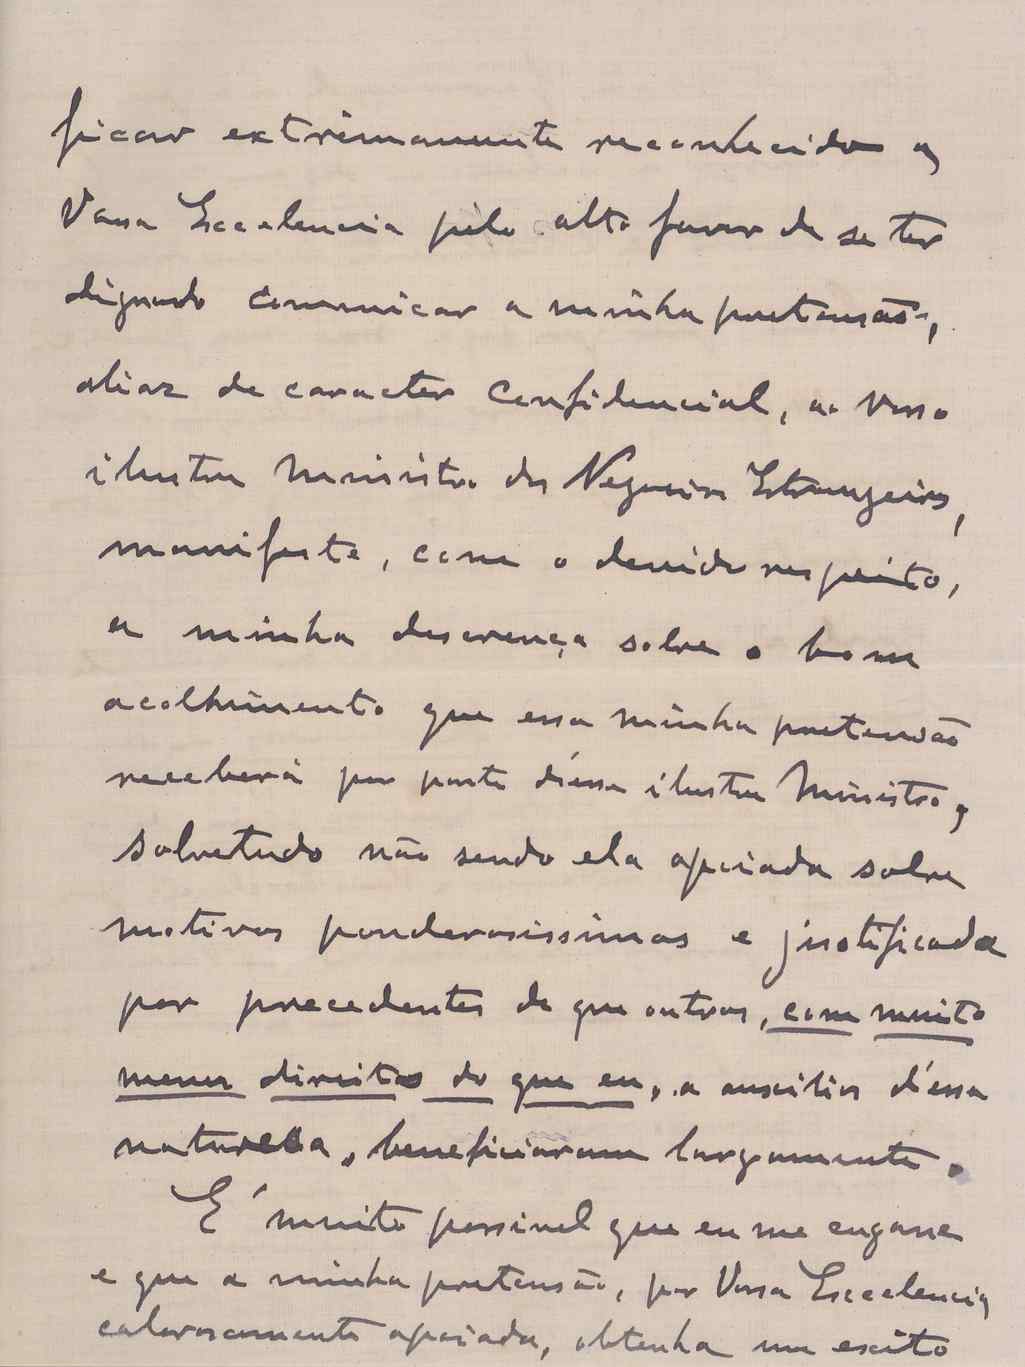 ficar extrêmamente reconhecido a
Vossa Excelencia pêlo alto favor de se ter
dignado comunicar a minha pretensão,
aliaz de caracter confidencial, ao vosso
ilustre Ministro dos Negocios Estrangeiros,
manifesto, com o devido respeito,
a minha descrença sobre o bom
acolhimento que essa minha pretensão
receberá por parte d'esse ilustre Ministro,
sobretudo não sendo ela apoiada sobre
motivos ponderosissimos e justificada
por precedentes de que outros, com muito
menos direitos do que eu, a auxilios d'essa
natureza, beneficiaram largamente.
E' muito possivel que eu me engane
e que a minha pretensão, por Vossa Excelencia
calorosamente apoiada, obtenha um exito